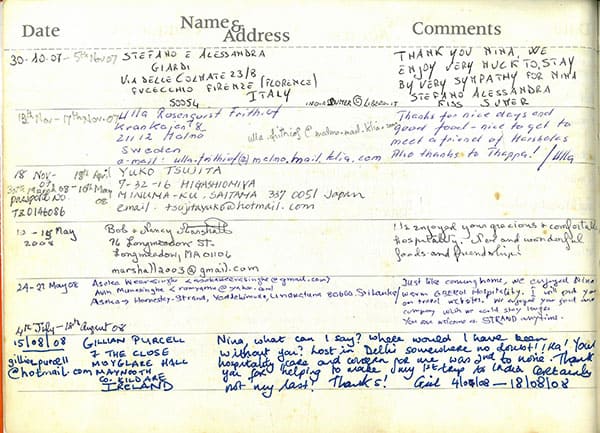 Date Name & Address Comments
30-10-07 - 5th Nov 07 STEFANO E ALESSANDRA
GIARDI
VIA DELLE COLMATE 23/8
FUCECCHIO FIRENZE (FLORENCE)
50054 ITALY
THANK YOU NINA, WE
ENJOY VERY MUCK TO STAY
BY VERY SYMPATHY FOR NINA
STEFANO ALESSANDRA
KISS SUMER
13th Nov - 17th Nov. 07 Ulla Rosenquist Frithiof
Krankajen 8
21112 Malmö
Sweden
e-mail: ulla.frithiof@malmo.mail.telia.com
Thanks for nice days and
good food - nice to get to
meet a friend of
Also thanks to Theppa! /Ulla
18 Nov - 18th April YUKO TSUJITA
08 - 10th May 08 7-32-16 HIGASHIOMIYA
PASSPORT NO. MINUMA-KU, SAITAMA 337 0051 Japan
TZ0146086 email. tsujitayuko@hotmail.com
10 - 15 May Bob & Nancy Marshall
2008 76 Longmeadow St.
Longmeadow, MA 01106
marshall2003@gmail.com
We enjoyed your gracious & comfortable
hospitality. New and wonderful
foods and friendship!
24-27 May 08
Asoka Homestay-Strand, Yaddehimulla, Unawatuna 80600 Sri Lanka
Just like coming home, we enjoyed Nina
warm hospitality. I will put you
on travel websites. We enjoyed your good
company wish we could stay longer
You are welcome at STRAND anytime.
4th July - 18th August 08
15/08/08 GILLIAN PURCELL
gillianpurcell 7 THE CLOSE
@hotmail.com MOYGLARE HALL
MAYNOOTH
CO. KILDARE
IRELAND
Nina, what can I say? Where would I have been
without you? Lost in Delhi somewhere no doubt! Your
hospitality, care and concern for me was 2nd to none. Thank
you for helping to make my 1st trip to India certainly
not my last! Thanks! Gill 4/07/08 - 18/08/08